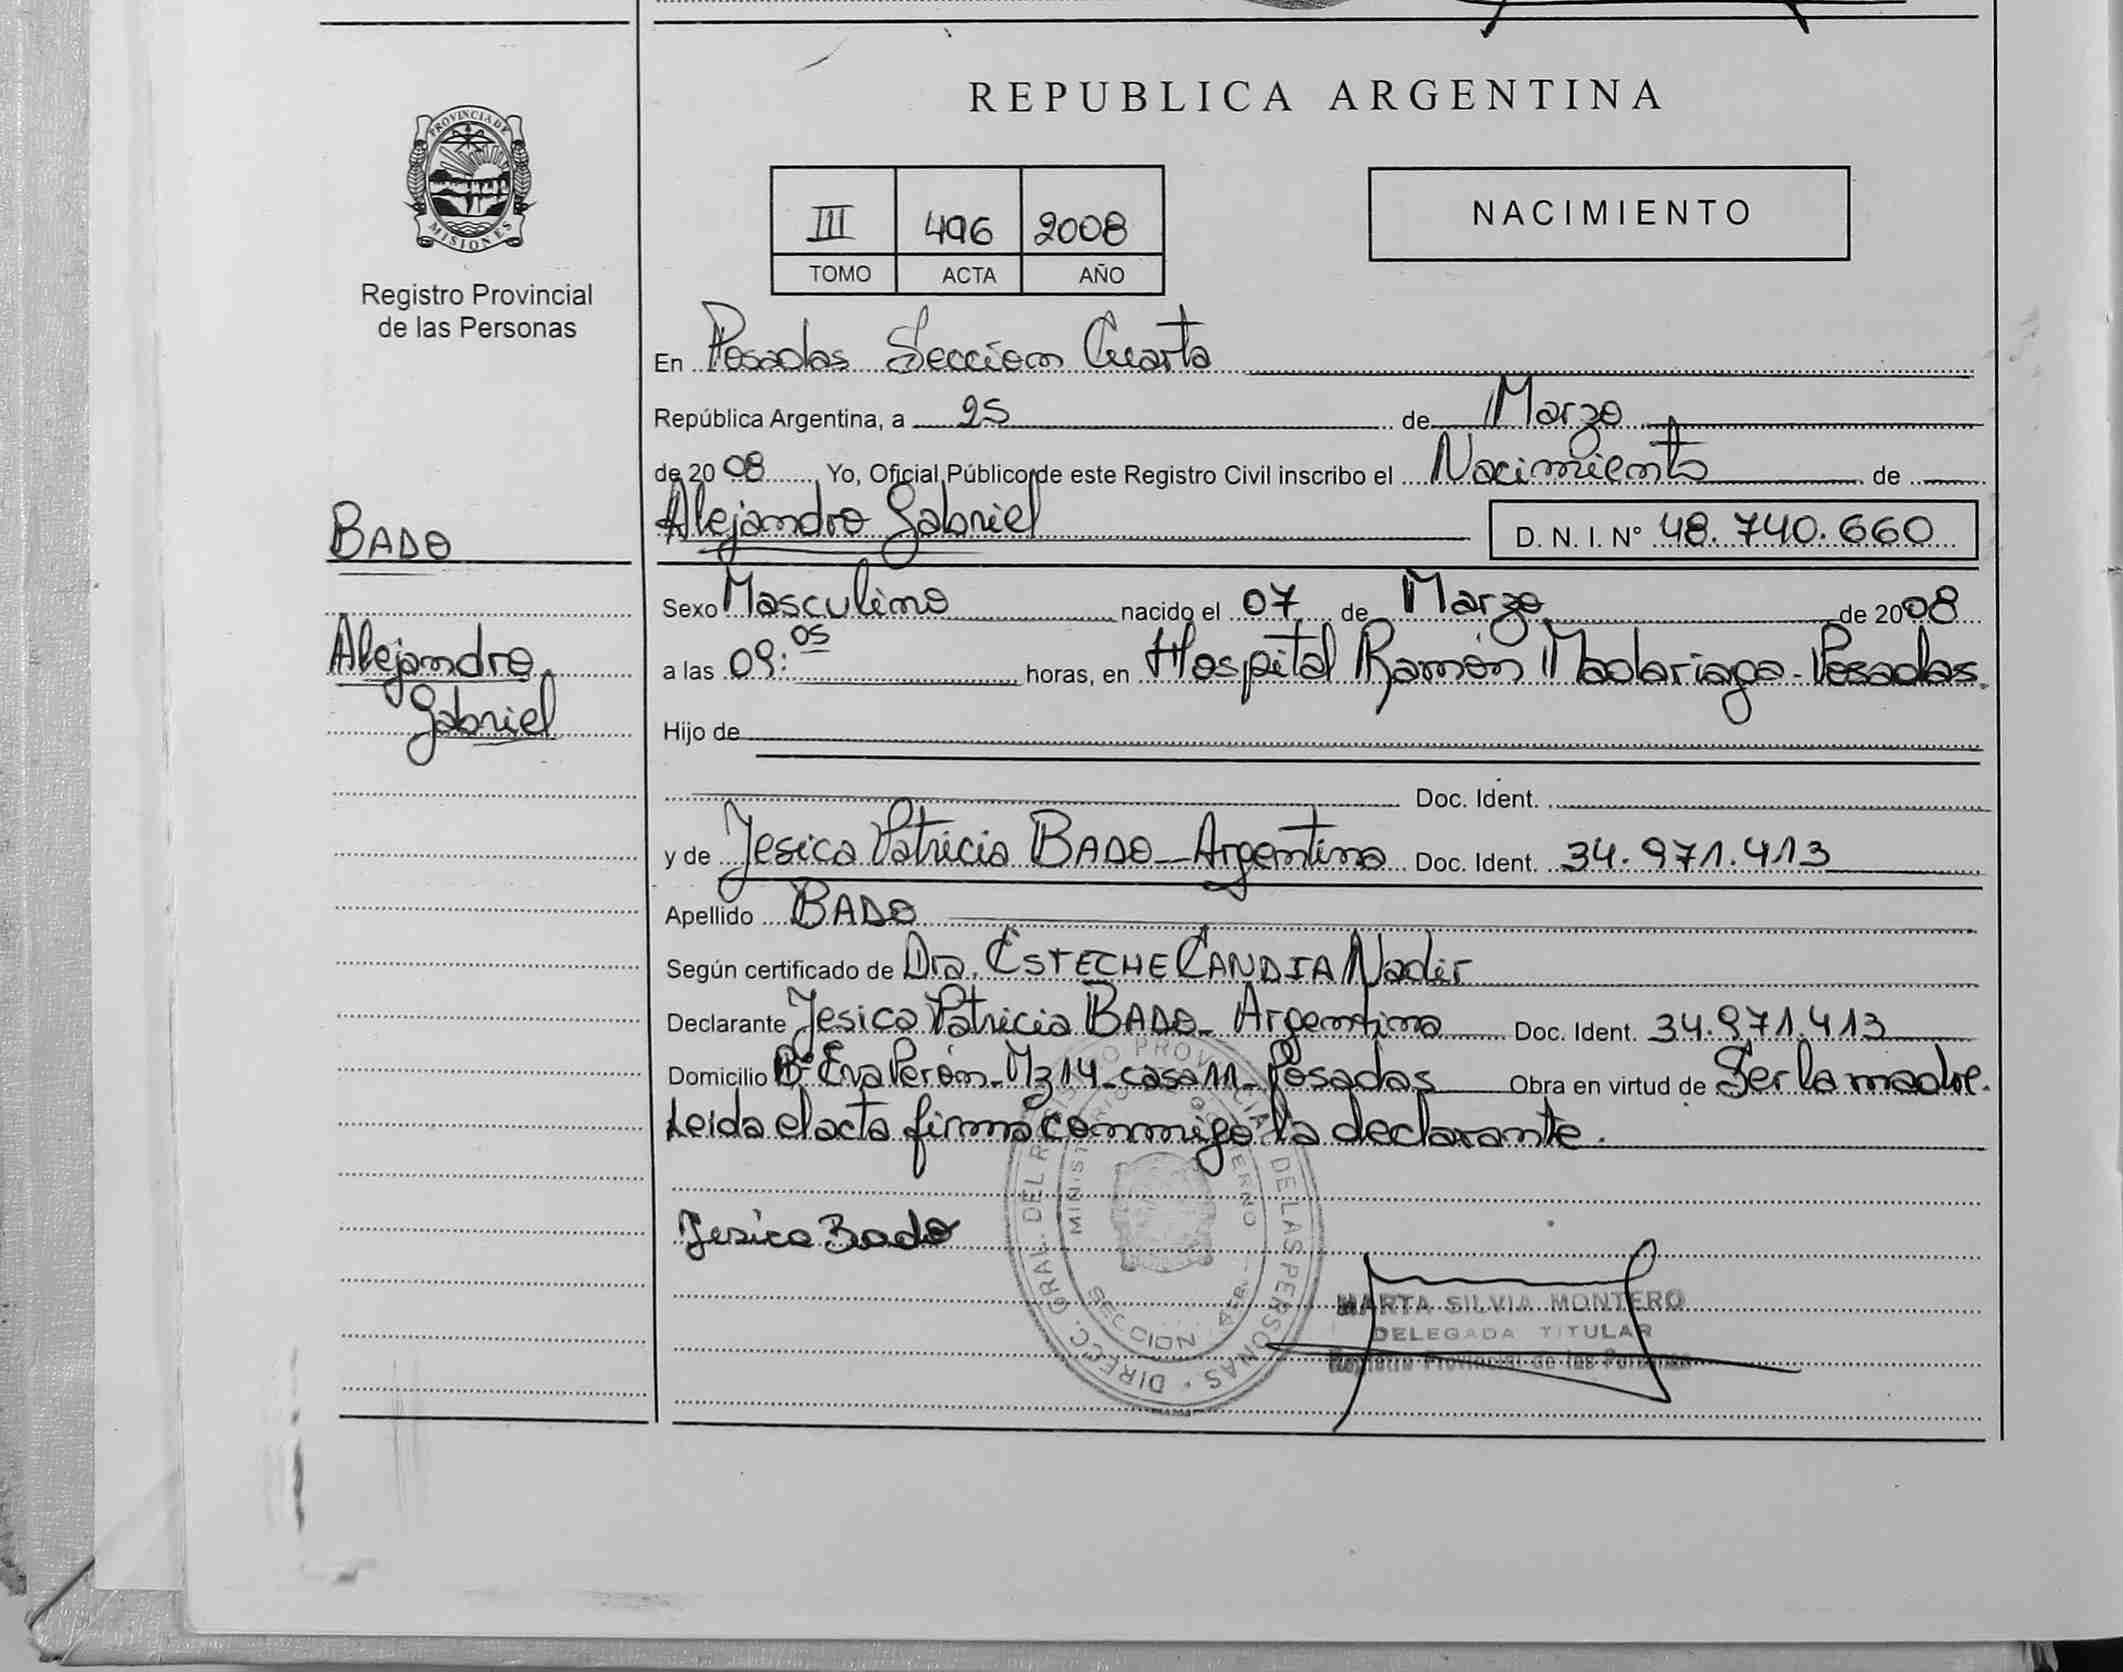 REPUBLICA ARGENTINA
PROVINCIA DE MISIONES
Registro Provincial
de las Personas
III 496 2008
TOMO ACTA AÑO
NACIMIENTO
En Posadas Seccion Cuarta
República Argentina, a 25 de Marzo
de 2008 Yo, Oficial Público de este Registro Civil inscribo el Nacimiento de
BADO
Alejandro Gabriel D. N. I. N° 48.740.660
Sexo Masculino nacido el 07 de Marzo de 2008
Alejandro
Gabriel
a las 09:05 horas, en Hospital Ramón Madariaga - Posadas.
Hijo de
Doc. Ident.
y de Jesica Patricia BADO - Argentina Doc. Ident. 34.971.413
Apellido BADO
Según certificado de Dra. ESTECHE CANDIA Nadir
Declarante Jesica Patricia BADO - Argentina Doc. Ident. 34.971.413
Domicilio B° Eva Perón - Mz 14 - casa 11 - Posadas Obra en virtud de Ser la madre.
Leida el acta firma conmigo la declarante.
Jesica Bado
DIRECC. GRAL. DEL REGISTRO PROVINCIAL DE LAS PERSONAS
MINISTERIO DE GOBIERNO
SECCION 4ta.
MARTA SILVIA MONTERO
DELEGADA TITULAR
Registro Provincial de las Personas